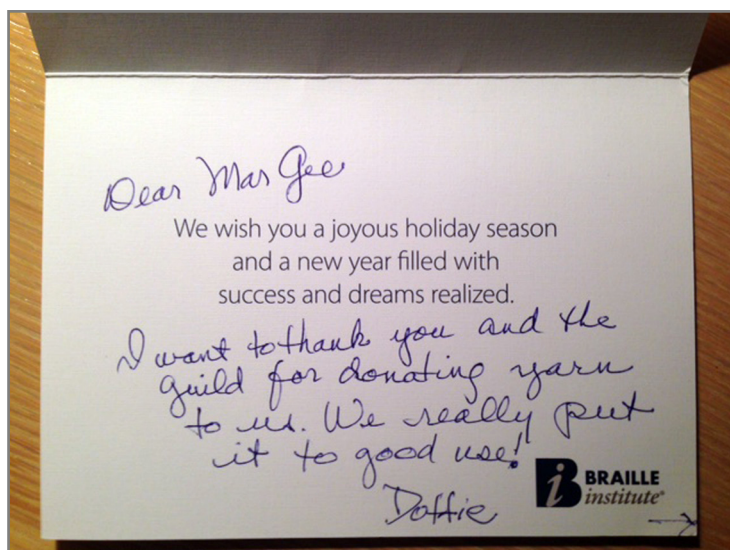 Dear Mar Gee
We wish you a joyous holiday season
and a new year filled with
success and dreams realized.
I want to thank you and the
guild for donating yarn
to us. We really put
it to good use!
Dottie
BRAILLE
institute®